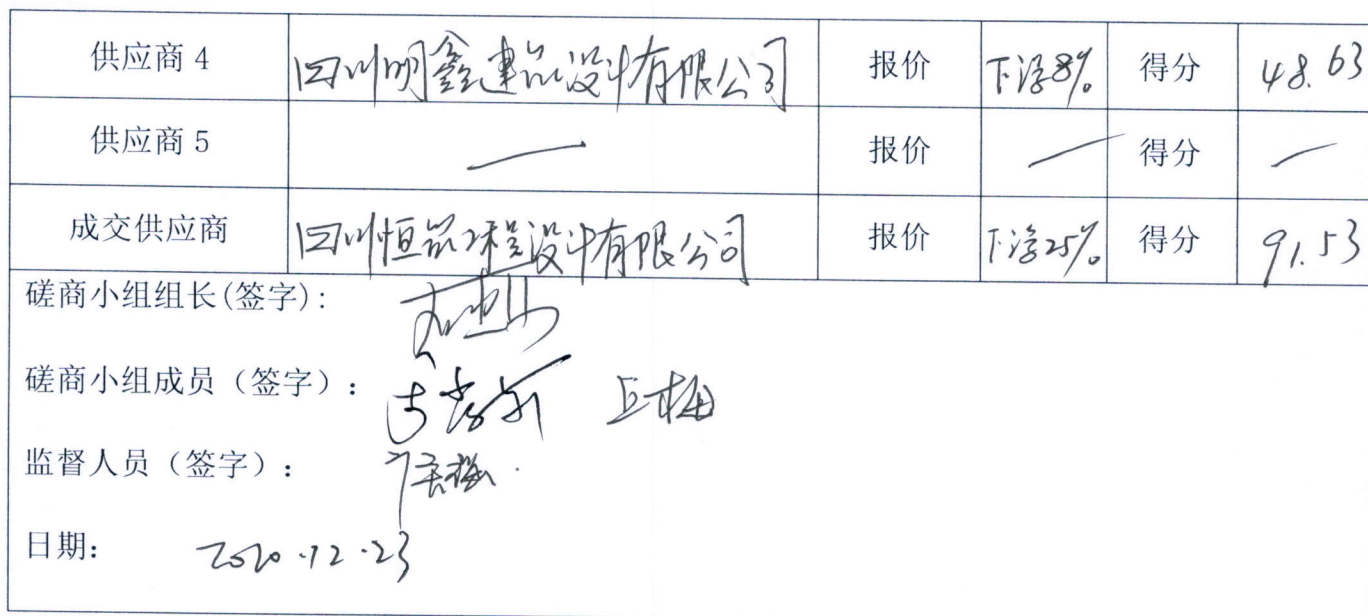 供应商 4 四川明鑫建筑设计有限公司 报价 下浮8% 得分 48.63
供应商 5 — 报价 — 得分 —
成交供应商 四川恒筑工程设计有限公司 报价 下浮25% 得分 91.53
磋商小组组长(签字):
磋商小组成员（签字）:
监督人员（签字）:
日期: 2020.12.23